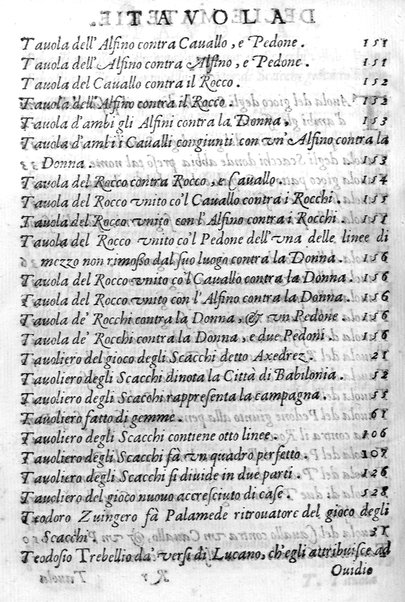 Tauola dell'Alfino contra Cauallo, e Pedone. 151
Tauola dell'Alfino contra Alfino, e Pedone. 151
Tauola del Cauallo contra il Rocco. 152
Tauola dell'Alfino contra il Rocco. 152
Tauola d'ambi gli Alfini contra la Donna. 153
Tauola d'ambi i Caualli congiunti con vn'Alfino contra la
Donna. 153
Tauola del Rocco contra Rocco, e Cauallo. 154
Tauola del Rocco vnito co'l Cauallo contra i Rocchi. 155
Tauola del Rocco vnito con l'Alfino contra i Rocchi. 155
Tauola del Rocco vnito co'l Pedone dell'vna delle linee di
mezzo non rimosso dal suo luogo contra la Donna. 156
Tauola del Rocco vnito co'l Cauallo contra la Donna. 156
Tauola del Rocco vnito con l'Alfino contra la Donna. 156
Tauola de' Rocchi contra la Donna, & vn Pedone. 156
Tauola de' Rocchi contra la Donna, e due Pedoni. 156
Tauoliero del gioco degli Scacchi detto Axedrez. 21
Tauoliero degli Scacchi dinota la Città di Babilonia. 52
Tauoliero degli Scacchi rappresenta la campagna. 55
Tauoliero fatto di gemme. 61
Tauoliero degli Scacchi contiene otto linee. 106
Tauoliero degli Scacchi fà vn quadro perfetto. 107
Tauoliero degli Scacchi si diuide in due parti. 126
Tauoliero del gioco nuouo accresciuto di case. 128
Teodoro Zuingero fà Palamede ritrouatore del gioco degli
Scacchi. 31
Teodosio Trebellio da' versi di Lucano, ch'egli attribuisce ad
Ouidio